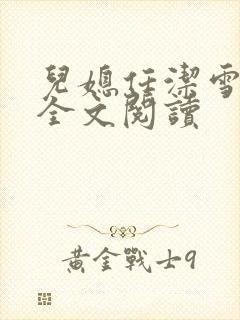 兒媳任潔雪
全文閱讀
黃金戰士9